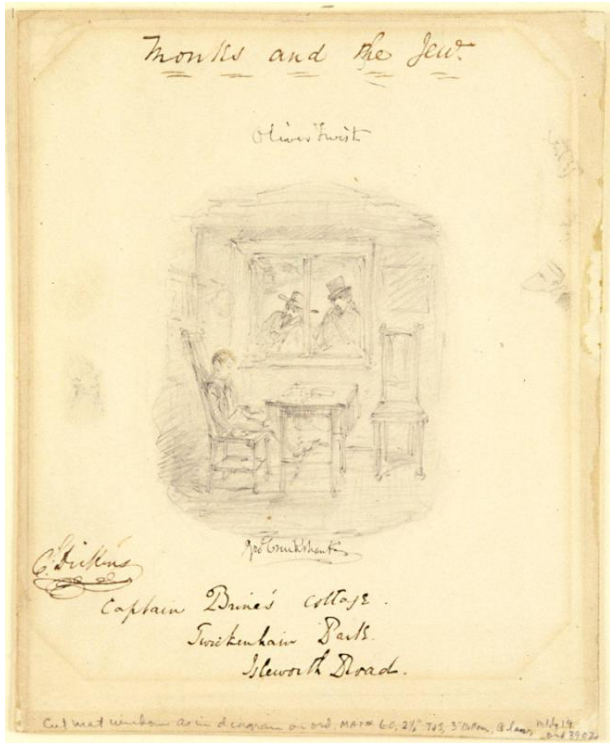 Monks and the Jew.
Oliver Twist
Geo Cruikshank
C Dickens
Captain Brine's Cottage.
Twickenham Park.
Isleworth Road.
Cut mat window as in diagram on ord. MAT# 60, 2½" T&S, 3" Bottom,